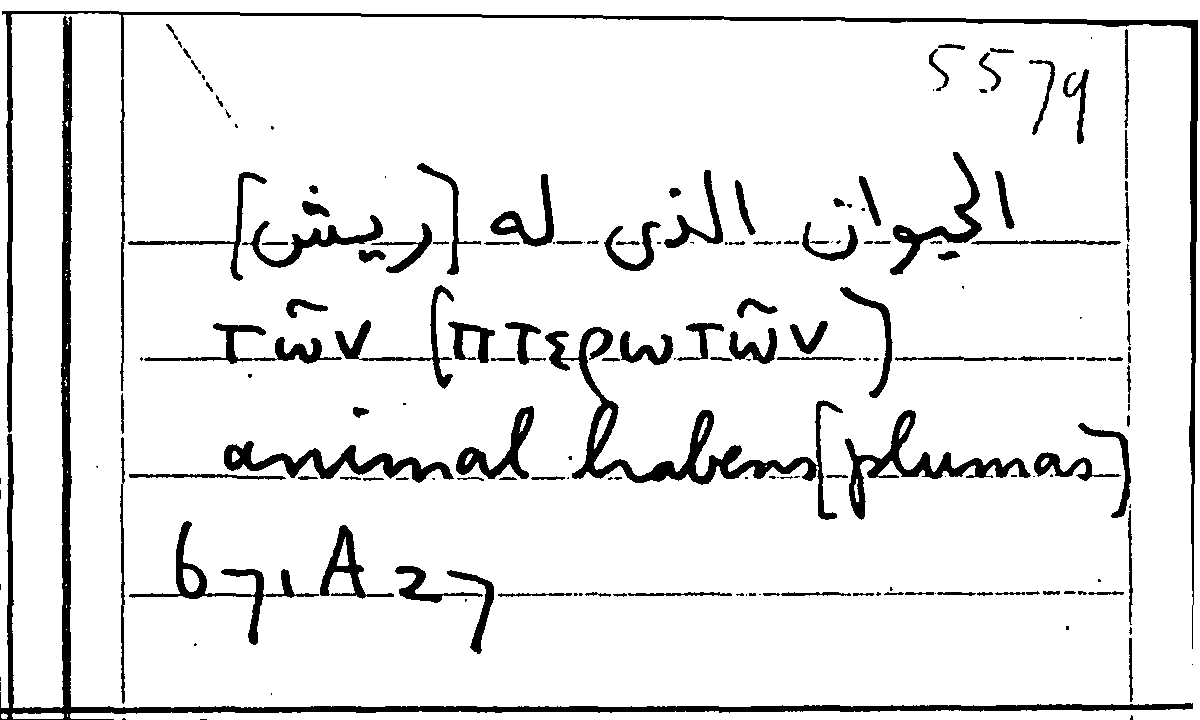 5579
الحيوان الذى له [ريش]
τῶν [πτερωτῶν]
animal habens [plumas]
671 A 27